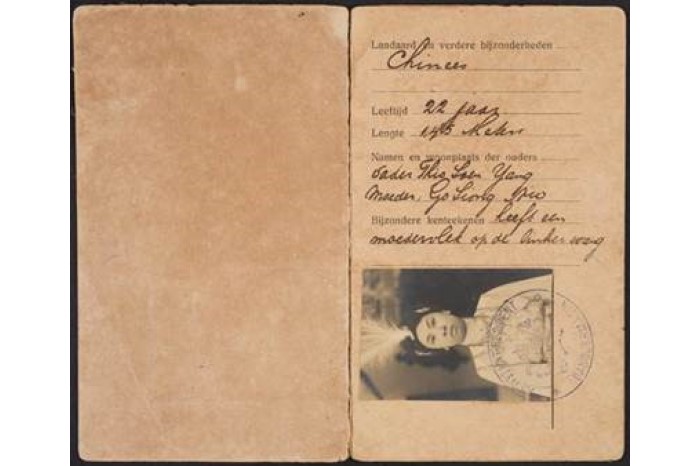 Landaard en verdere bijzonderheden
Chinees
Leeftijd 22 jaar
Lengte 1,45 Meter
Namen en woonplaats der ouders
Vader Thio Soen Yang
Moeder, Go Siong
Bijzondere kenteekenen heeft een
moedervlek op de linker wang